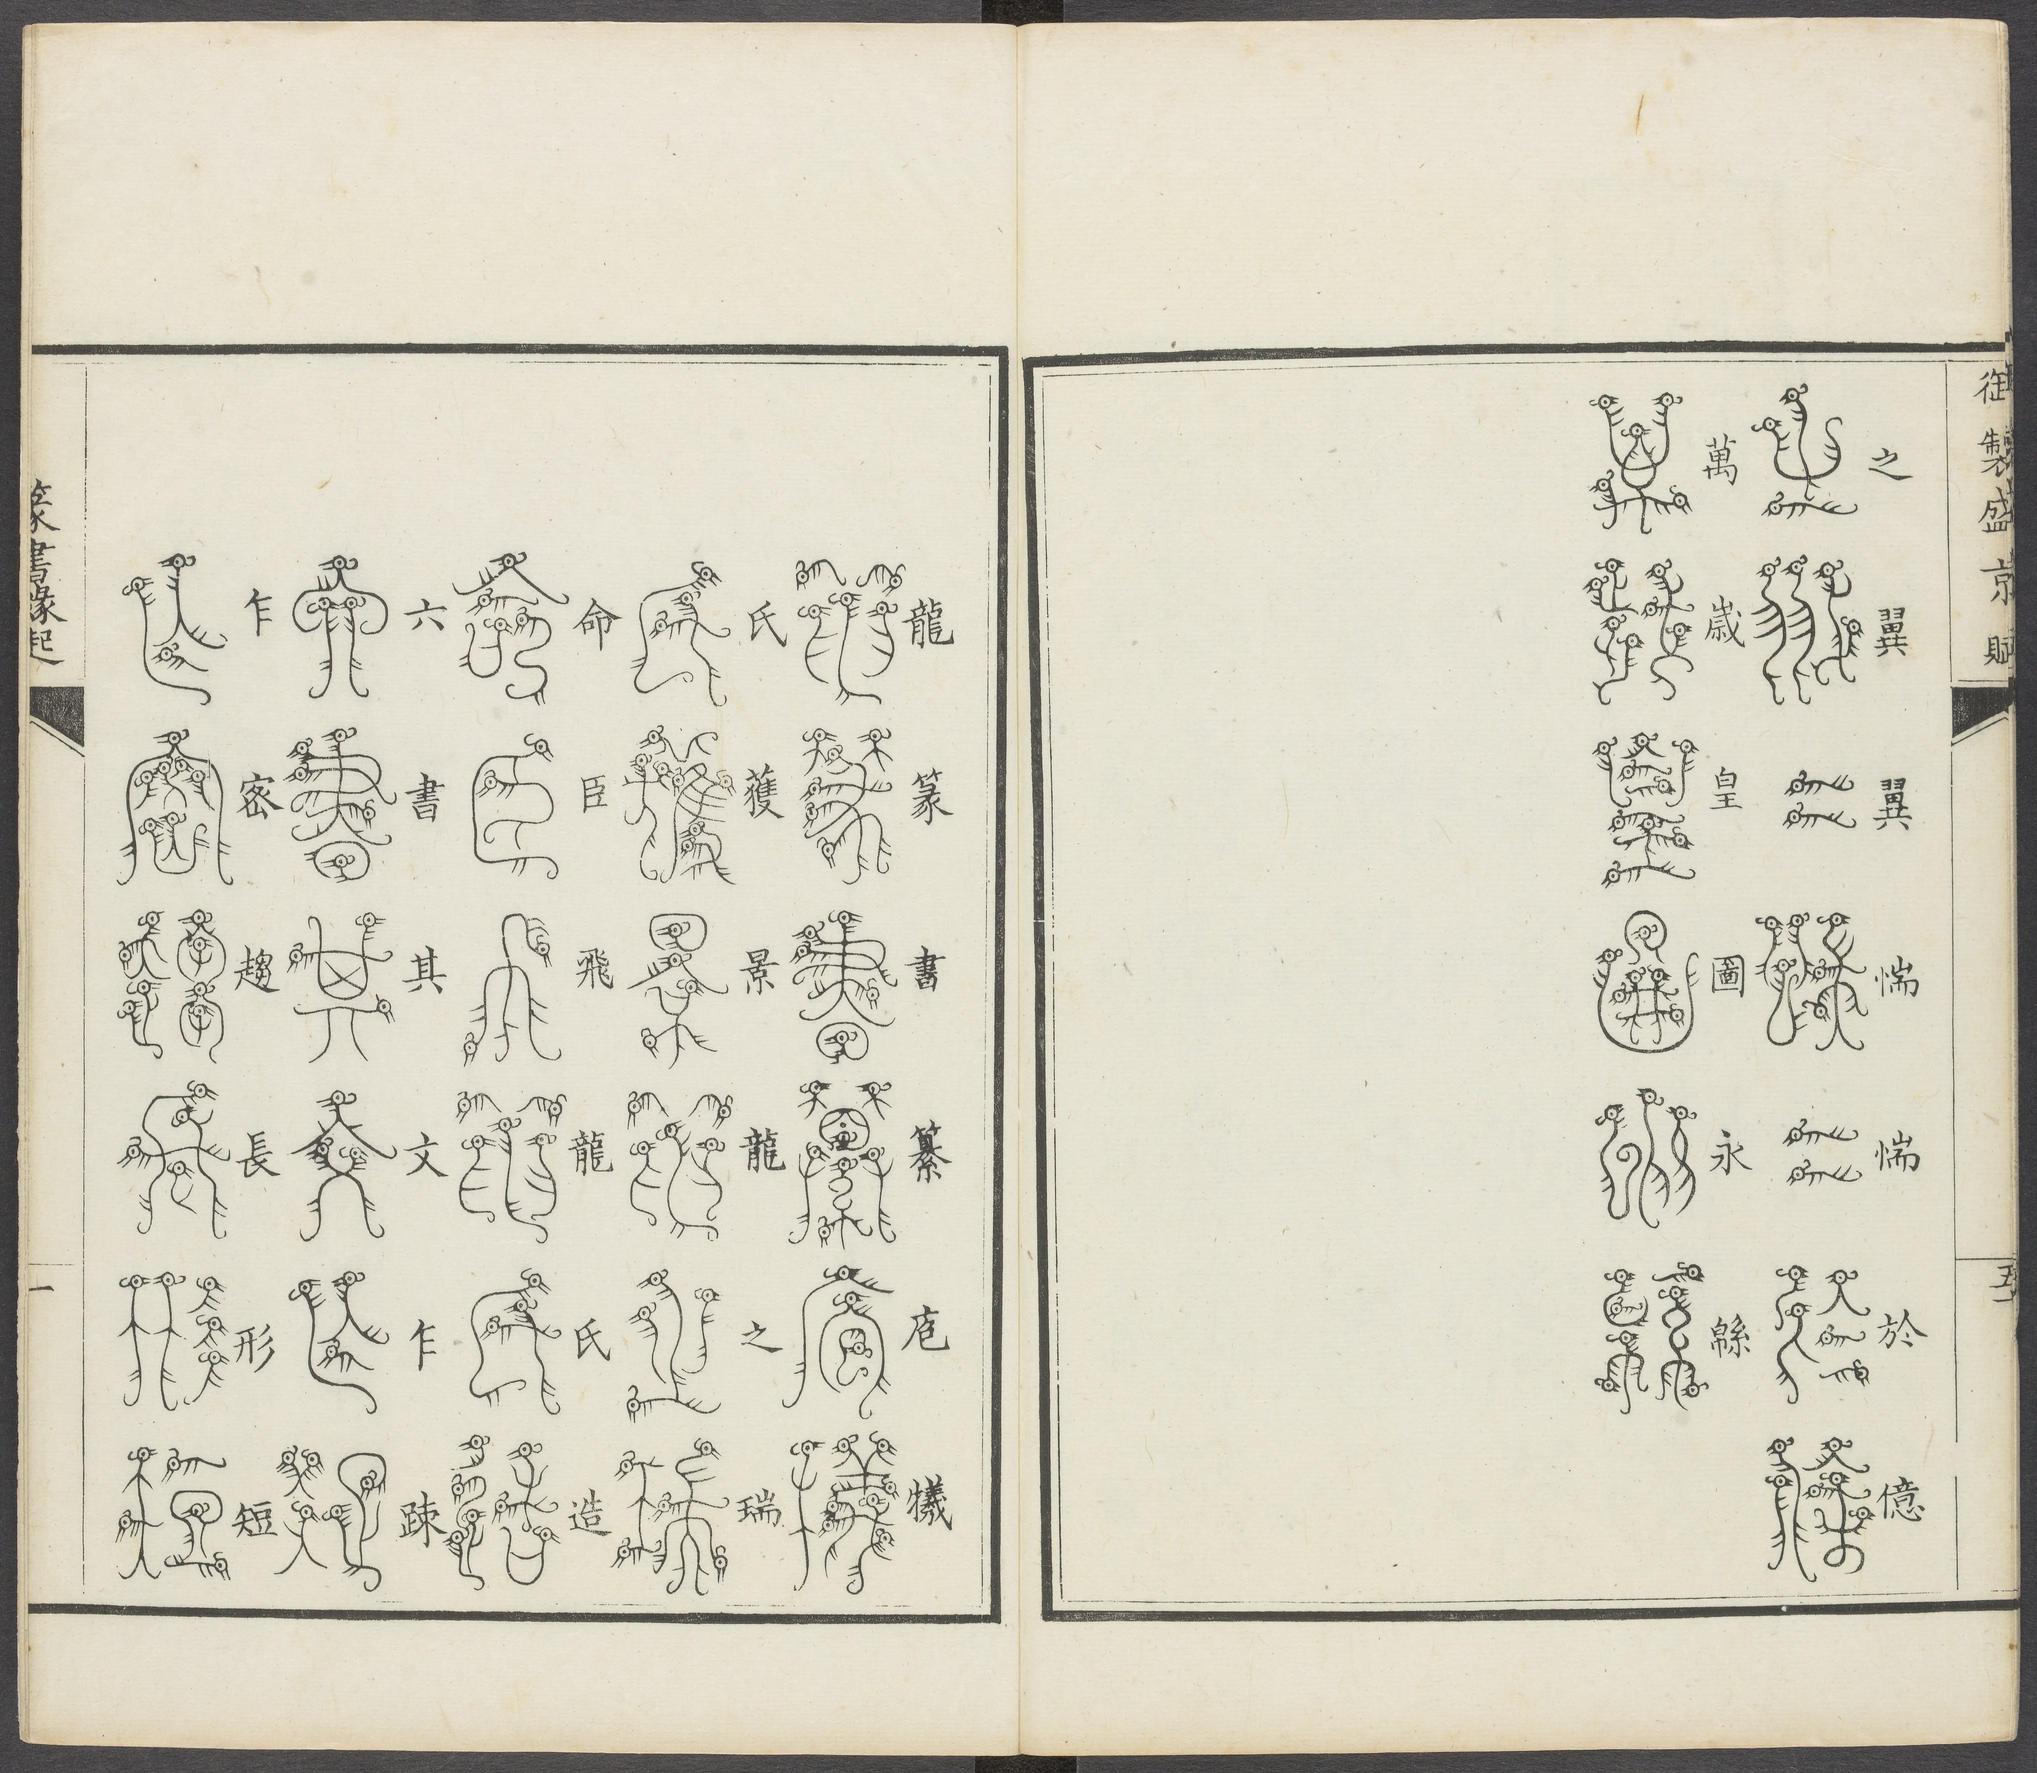 御製盛京賦
五十一
之翼翼惴惴於億
萬歲皇圖永緜
龍篆書纂庖犧
氏獲景龍之瑞
命臣飛龍氏造
六書其文乍疎
乍密趨長形短
篆書緣起
一